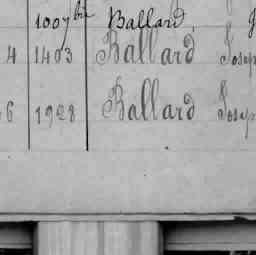 1007 bis Ballard
4 1403 Ballard Josep
6 1928 Ballard Josep